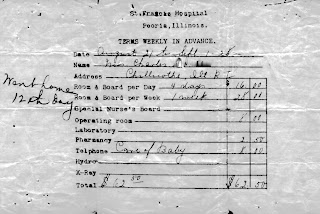 St. Francis Hospital
Peoria, Illinois.
TERMS WEEKLY IN ADVANCE.
Date August 21 to Sept 1 - 28
Name Mrs Charles
Address Chillicothe, Ill R.
Room & Board per Day 4 days 16 00
Went home
Room & Board per Week 1 week
12th day
Special Nurse's Board
Operating room 00
Laboratory
Pharmacy 2 50
Telphone Care of Baby 8 00
Hydro
X-Ray
Total $62 50 $62 50